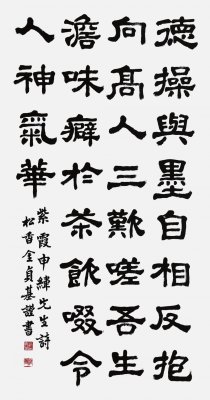 德操與墨自相反抱
向高人三歎嗟吾生
澹味癖於茶飮啜令
人神氣華
紫霞申緯先生詩
松香全貞基謹書